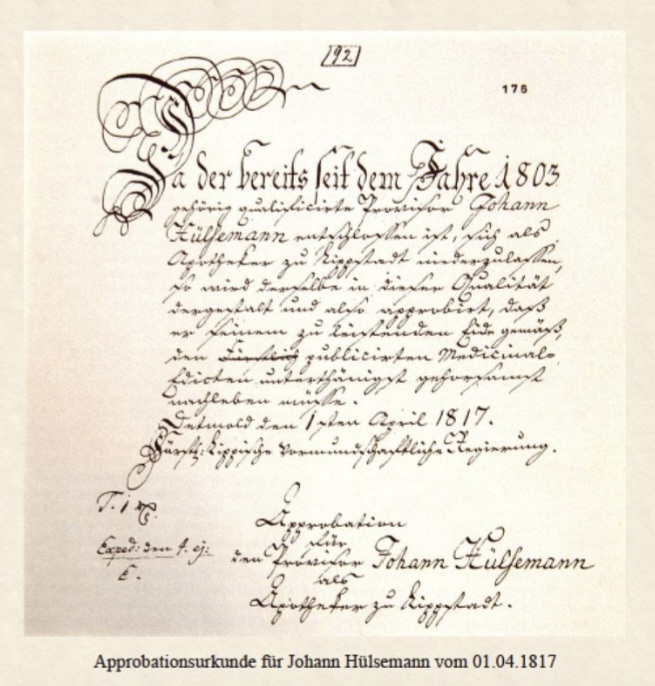 [92]
176
Da der bereits seit dem Jahre 1803
gehörig qualificirte Provisor Johann
Hülsemann entschlossen ist, sich als
Apotheker zu Lippstadt niederzulassen,
so wird derselbe in dieser Qualität
dergestalt und also approbirt, daß
er seinem zu leistenden Eide gemäß,
den Fürstlich publicirten Medicinal-
Edicten unterthänigst gehorsamst
nachleben müsse.
Detmold den 1sten April 1817.
Fürstl: Lippische vormundschaftliche Regierung.
Approbation
für
den Provisor Johann Hülsemann
als
Apotheker zu Lippstadt.
T. 1
Exped: den 4. ej:
Approbationsurkunde für Johann Hülsemann vom 01.04.1817